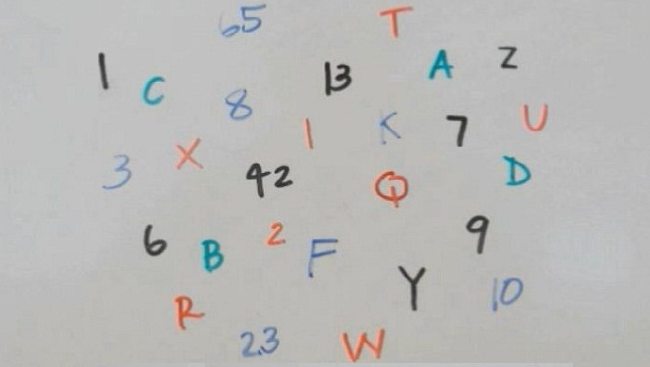 65 T
1 C 13 A Z
8 I K 7 U
3 X 42 Q D
6 B 2 F 9
R Y 10
23 W